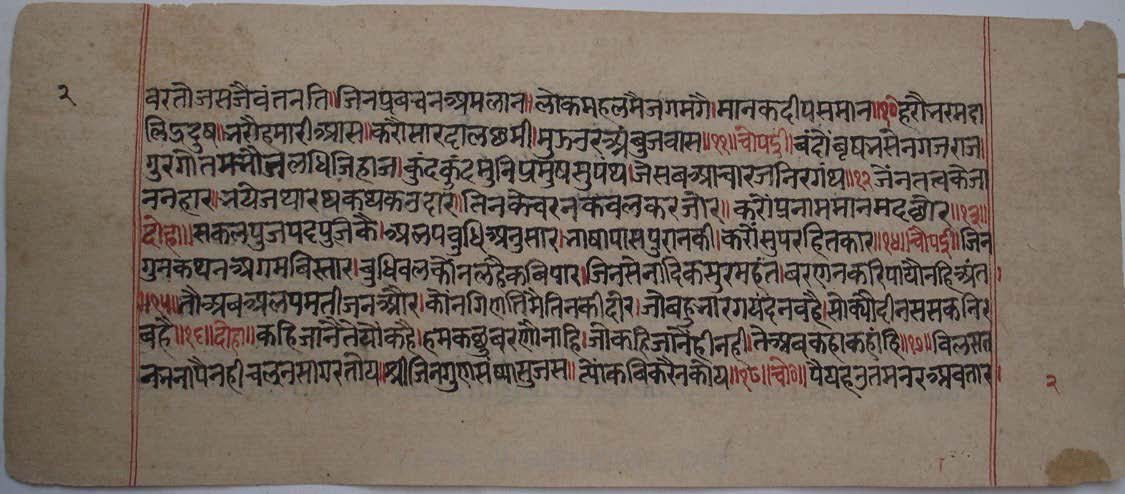 २
बरतौ जसजैवंतनति॥ जिनप्रबचनअमलान॥ लोकमहलमैजगमगै॥ मानकदीपसमान॥१०॥ हरौभरमदा
लिद्रदुष॥ भरौहमारीआस॥ करौसारदालछमी॥ मुझउरअंबुजवास॥११॥ चौपई॥ बंदौबृषभसेनगजराज।
गुरगौतम लधिजिहाज। कुंदकुंदमुनिप्रमुषसुपंथ। जेसबआचारजनिरगंथ॥१२ जेनतत्वकेजा
ननहार। भयेजथारथकथकउदार॥ तिनकेचरनकवलकरजोर॥ करौंप्रनाममानमदछोर॥१३॥
दोहा॥ सकलपुजपदपुजिकै। अलपबुधिअनुसार। भाषापासपुरानकी। करौंसुपरहितकार॥१४॥ चौपई॥ जिन
गुनकथनअगमबिस्तार। बुधिबलकौनलहैकबिपार। जिनसेनादिकसुरमहंत। बरणनकरिपायौनहिअंत
॥१५॥ तौअबअलपमतीजनऔर। कौनगिणतिमैतिनकीदौर। जोबहुभारगयंदनबहै। सोक्यौदीनससकनिर
बहै॥१६॥ दोहा॥ कहिजानैतेयौकहै। हमकछुबरणौनाहि। जोकहिजानैहीनही। तेअबकहाकहांहि॥१७॥ बिलसत
नभनापैनही चलुनसागरतोय॥ श्रीजिनगुणसंष्यासुजस॥ त्योंकबिकरैनकोय॥१८॥ चौ०॥ पैयहउतमनरअवतार
२